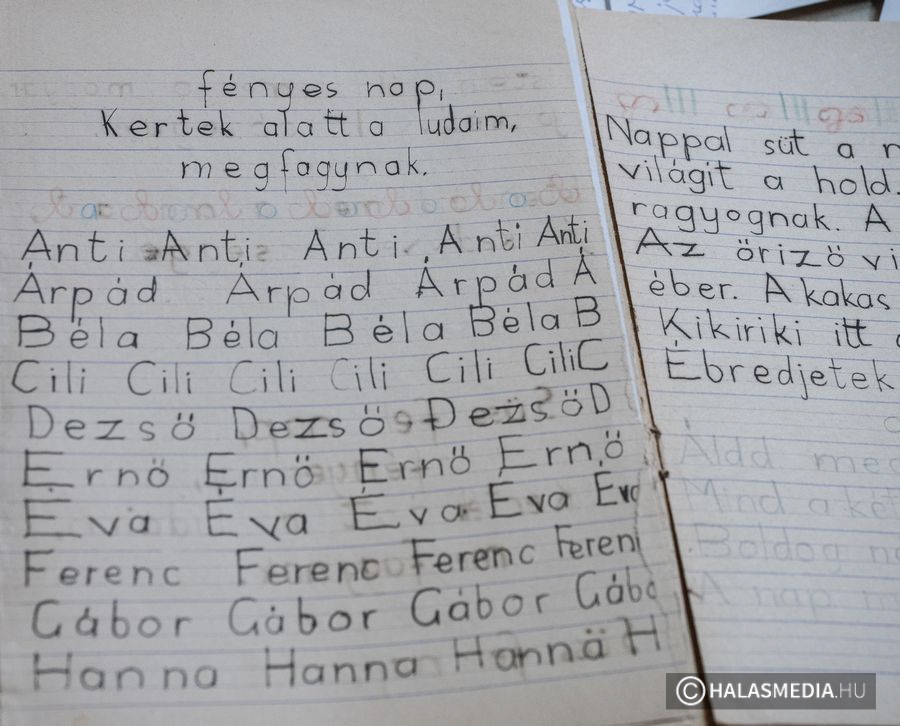 fényes nap,
Kertek alatt a ludaim,
megfagynak.
Anti Anti Anti Anti Anti
Árpád Árpád Árpád Á
Béla Béla Béla Béla B
Cili Cili Cili Cili Cili Cili C
Dezső Dezső Dezső D
Ernő Ernő Ernő Ernő
Éva Éva Éva Éva Éva
Ferenc Ferenc Ferenc Feren
Gábor Gábor Gábor Gábo
Hanna Hanna Hanna H
Nappal süt a n
világit a hold.
ragyognak. A
Az őriző vi
éber. A kakas
Kikiriki itt
Ébredjetek
Áldd meg
Mind a két
Boldog
A nap
© HALASMEDIA.HU